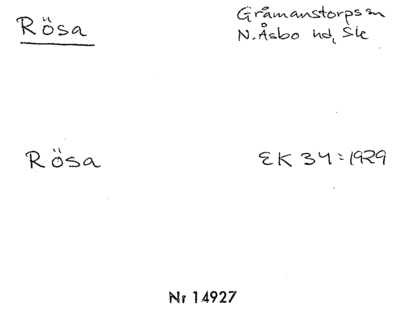 Rösa
Gråmanstorps sn
N. Åsbo hd, Sk
Rösa
EK 34:1929
Nr 14927